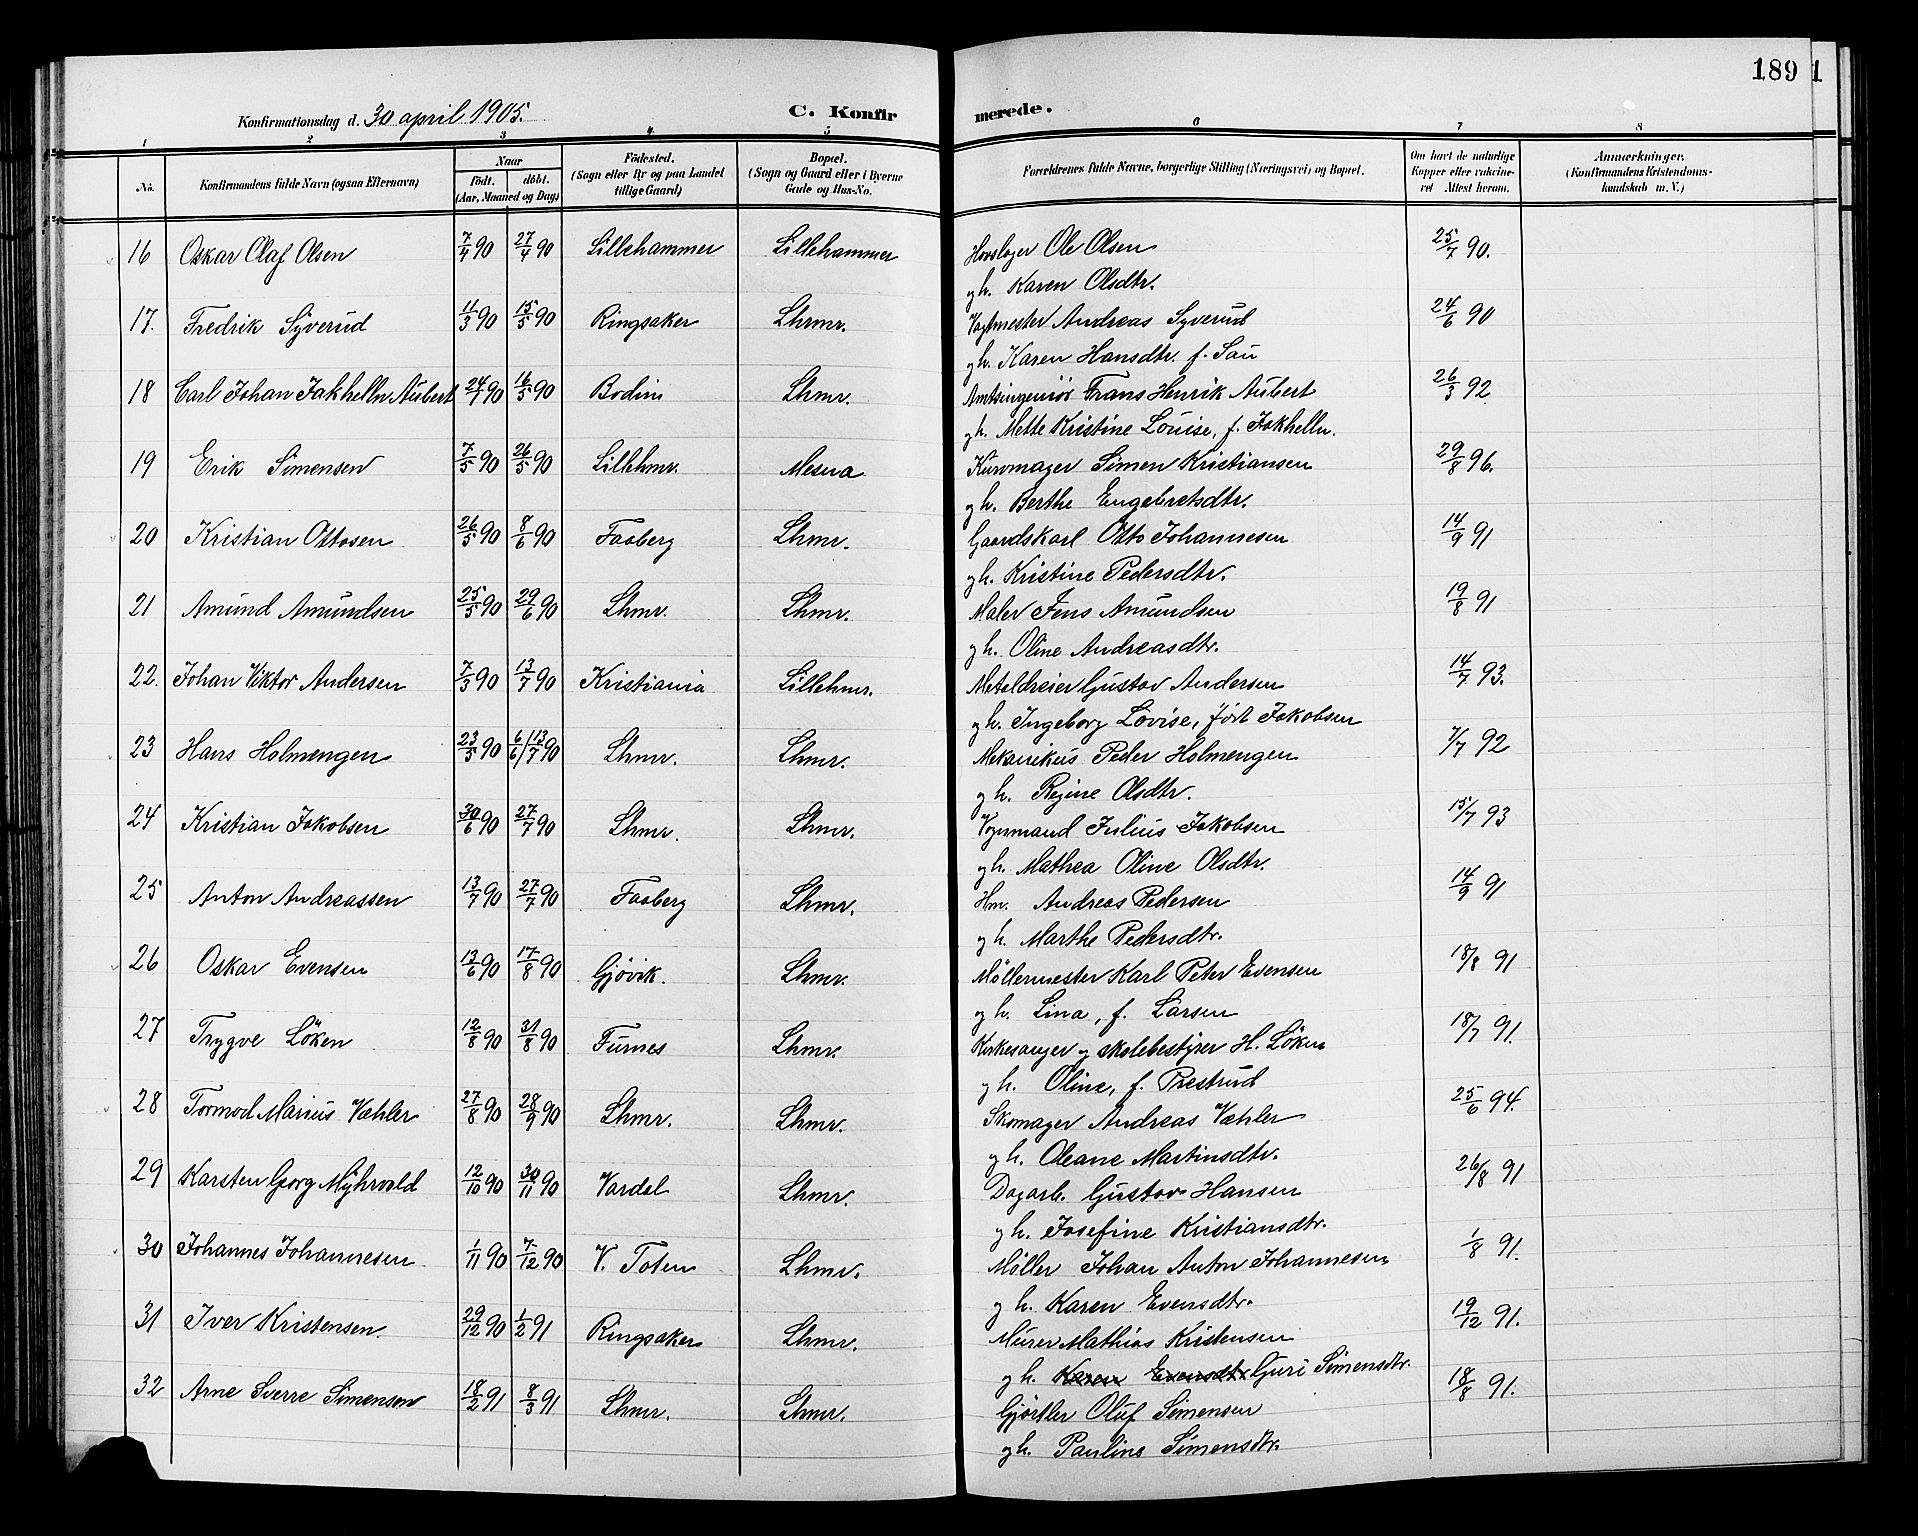 189 1
Konfirmationsdag d. 30 april 1905. C. Konfirmerede.
1 2 3 4 5 6 7 8
No. Konfirmandens fulde Navn (ogsaa Efternavn) Naar födt. döbt. (Aar, Maaned og Dag) Födested. (Sogn eller By og paa Landet tillige Gaard) Bopæl. (Sogn og Gaard eller i Byerne Gade og Hus-No. Forældrenes fulde Navne, borgerlige Stilling (Næringsvei) og Bopæl. Om havt de naturlige Kopper eller vakcineret Attest herom. Anmærkninger. (Konfirmandens Kristendomskundskab m. V.)
16 Oskar Olaf Olsen 7/4 90 27/4 90 Lillehammer Lillehammer Hovslager Ole Olsen 25/7 90.
gh. Karen Olsdtr.
17. Fredrik Syverud 11/3 90 15/5 90 Ringsaker Lhrmr. Vagtmester Andreas Syverud 24/6 90
gh. Karen Hansdtr. f. Sau
18 Carl Johan Jakhelln Aubert 24/1 90 16/5 90 Bodin Lhmr. Amtsingeniör Frans Henrik Aubert 26/3 92
gh. Mette Kristine Louise, f. Jakhelln.
19 Erik Simensen 7/5 90 26/5 90 Lillehmr. Mesna Kurvmager Simen Kristiansen 29/8 96.
gh. Berthe Engebretsdtr.
20 Kristian Ottosen 26/5 90 8/6 90 Faaberg Lhmr. Gaardskarl Otto Johannesen 14/9 91
gh. Kristine Pedersdtr.
21 Amund Amundsen 25/5 90 29/6 90 Lhmr. Lhmr. Maler Jens Amundsen 19/8 91
gh. Oline Andreasdtr.
22. Johan Viktor Andersen 7/3 90 13/7 90 Kristiania Lillehmr. Metaldreier Gustav Andersen 14/7 93.
gh. Ingeborg Lovise, født Jakobsen
23 Hans Holmengen 23/5 90 6/6 / 13/7 90 Lhmr. Lhmr. Mekanikus Peder Holmengen 7/7 92
gh. Regine Olsdtr.
24 Kristian Jakobsen 30/6 90 27/7 90 Lhmr. Lhmr. Vognmand Julius Jakobsen 15/7 93
gh. Mathea Oline Olsdtr.
25 Anton Andreassen 13/7 90 27/7 90 Faaberg Lhmr. Hm. Andreas Pedersen 14/9 91
gh. Marthe Pedersdtr.
26 Oskar Evensen 13/6 90 17/8 90 Gjövik. Lhmr. Møllermester Karl Peter Evensen 18/8 91
gh. Lina, f. Larsen
27 Trygve Löken 12/8 90 31/8 90 Furnes Lhmr. Kirkesanger og skolebestyrer H. Löken 18/7 91.
gh. Oline, f. Prestrud
28 Tormod Marius Væhler 27/8 90 28/9 90 Lhmr. Lhmr. Skomager Andreas Væhler 25/6 94.
gh. Oleane Martinsdtr.
29 Karsten Georg Myhrvold 12/10 90 30/11 90 Vardal Lhmr. Dagarb. Gustav Hansen 26/8 91
gh. Josefine Kristiansdtr.
30 Johannes Johannesen 1/11 90 7/12 90 V. Toten Lhmr. Møller Johan Anton Johannesen 1/8 91.
gh. Karen Evensdtr.
31 Iver Kristensen 29/12 90 1/2 91 Ringsaker Lhmr. Murer Mathias Kristensen 19/12 91.
gh. Karen Evensdtr Guri Simensdtr.
32 Arne Sverre Simensen 18/2 91 8/3 91 Lhmr. Lhmr. Gjørtler Oluf Simensen 18/8 91.
gh. Pauline Simensdtr.